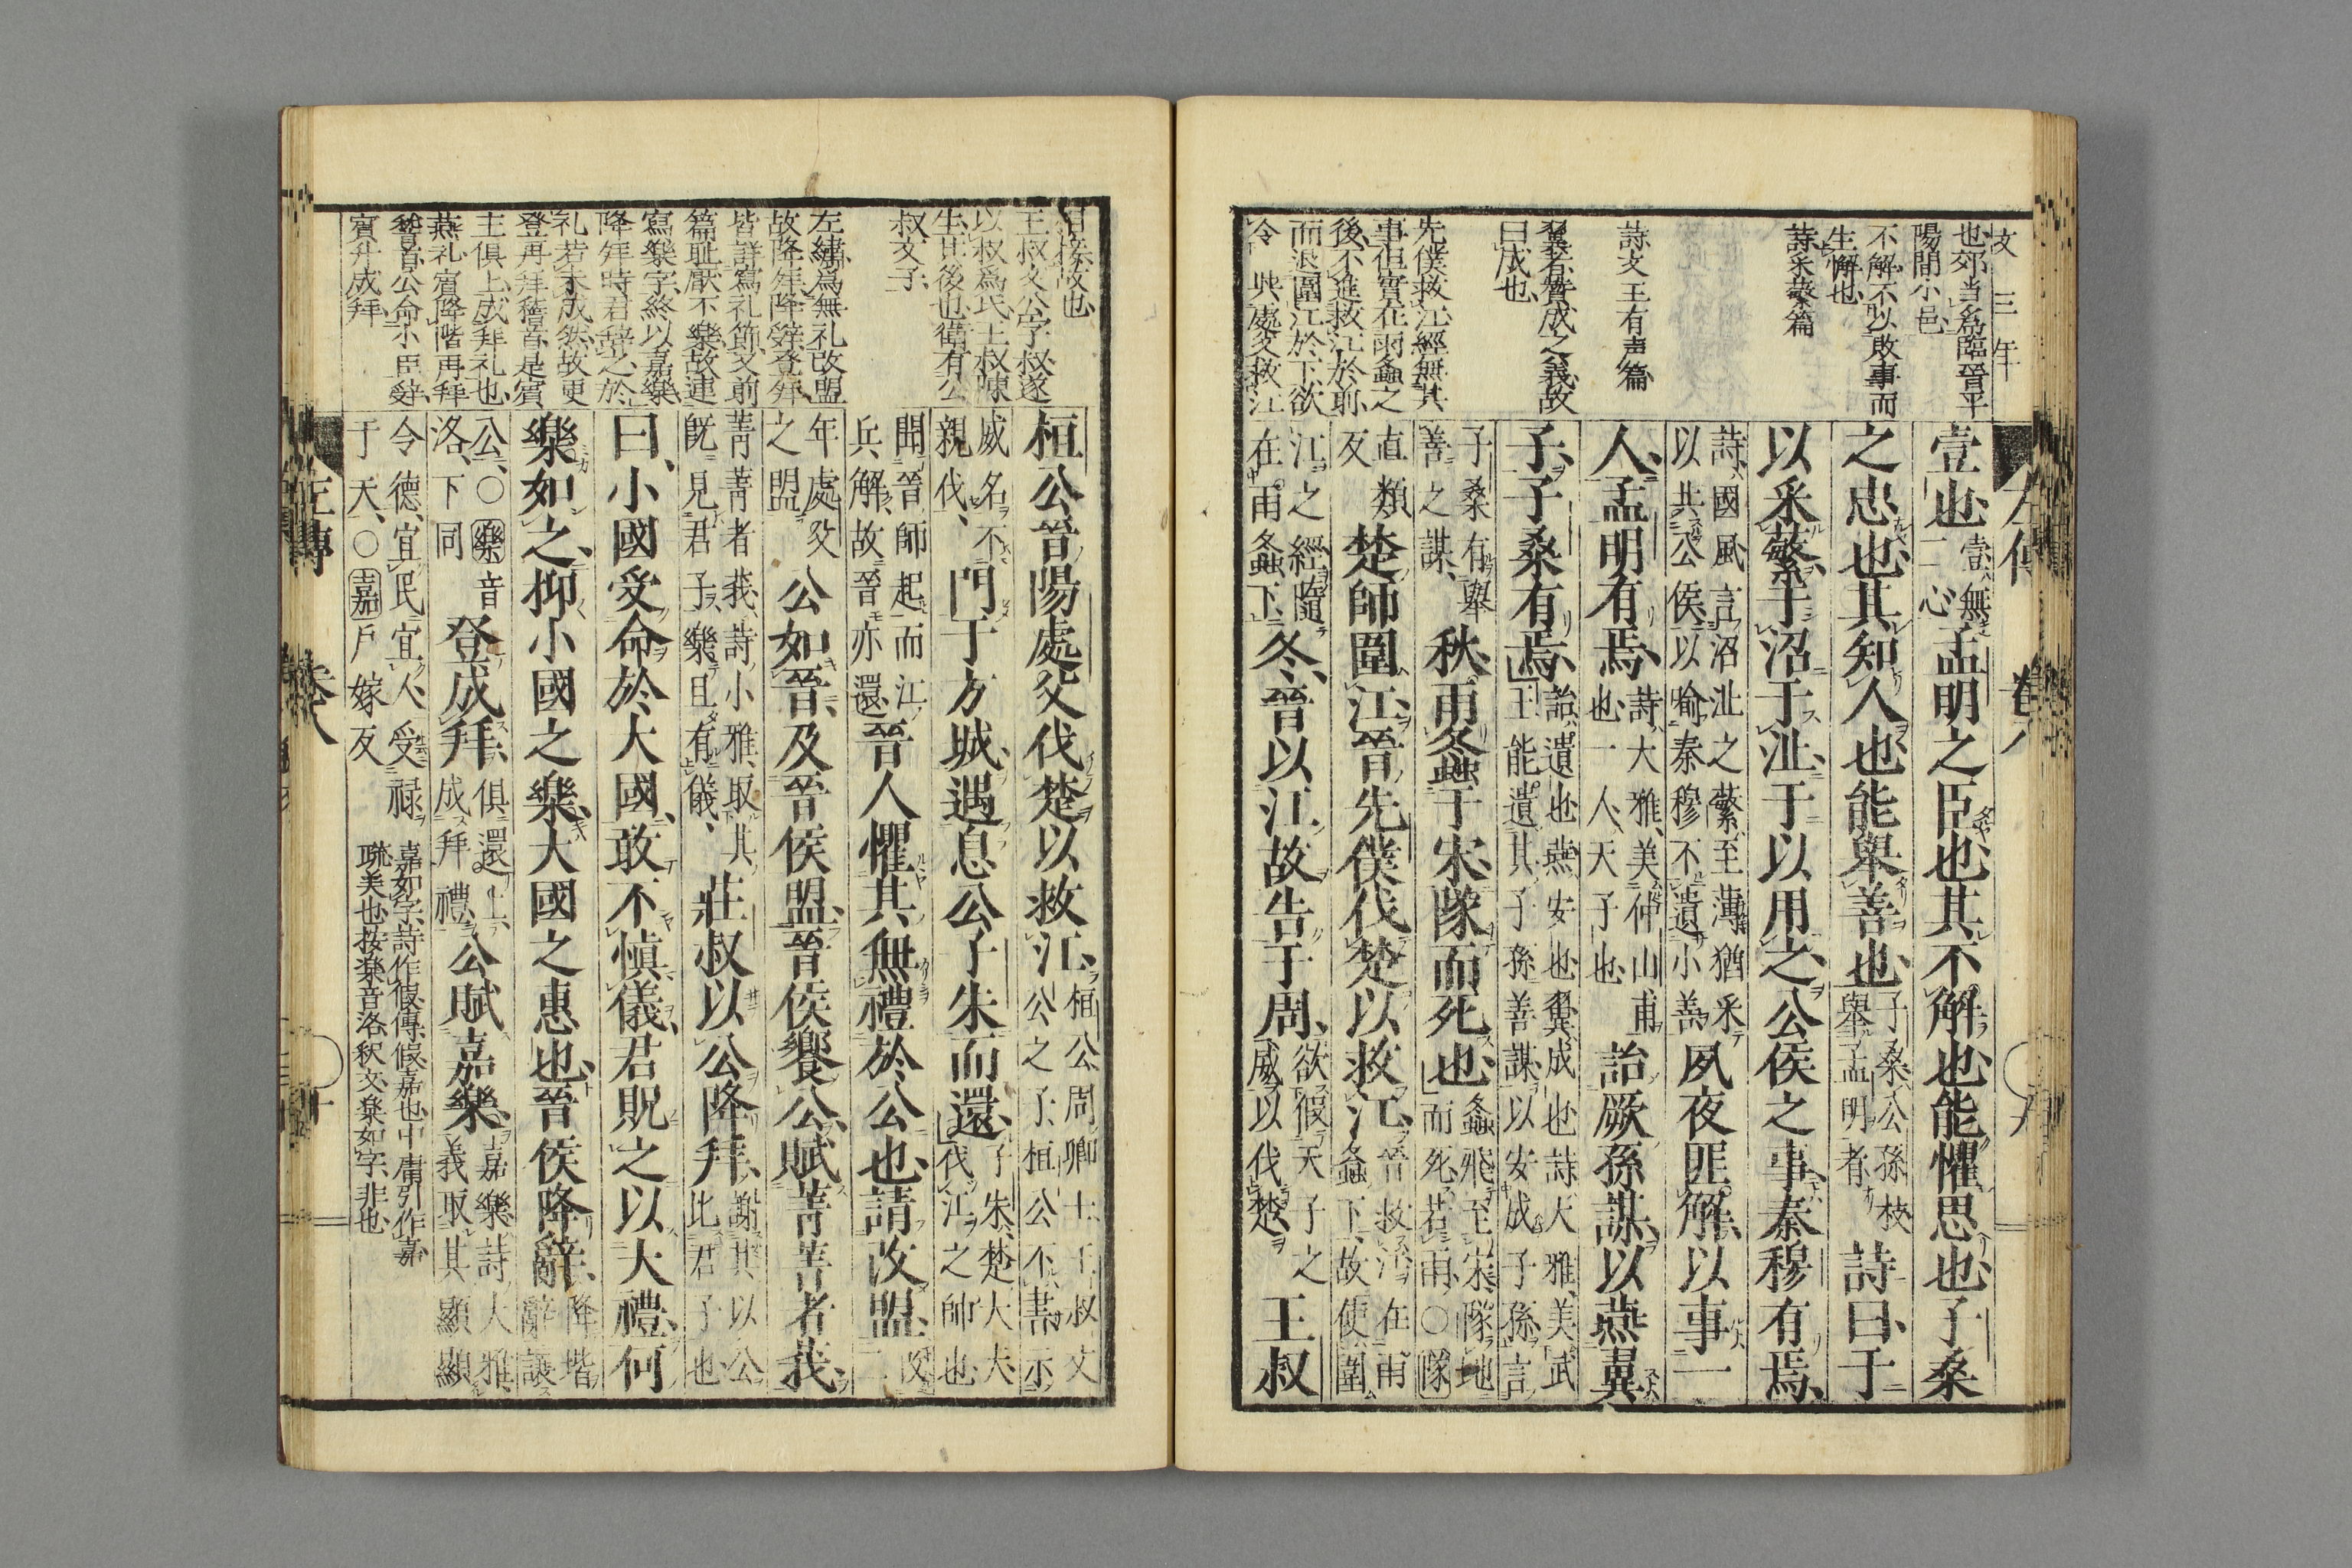 文三年
也郊当為臨晉平
陽間小邑
不解不以敗事而
生懈也
詩采蘩篇
詩文王有声篇
翼者賛成之義故
曰成也
先僕救江經無其
事但實在雨螽之
後不進救江於前
而退圍江於下欲
令與處父救江
左傳 卷八
壹也壹無二心孟明之臣也其不解也能懼思也子桑
之忠也其知人也能舉善也子桑公孫枝舉孟明者詩曰于
以采蘩于沼于沚于以用之公侯之事秦穆有焉
詩國風言沼沚之蘩至薄猶采以共公侯以喻秦穆不遺小善夙夜匪解以事一
人孟明有焉詩大雅美仲山甫也一人天子也詒厥孫謀以燕翼
子子桑有焉詒遺也燕安也翼成也詩大雅美武王能遺其子孫善謀以安成子孫言
子桑有舉善之謀秋雨螽于宋隊而死也螽飛至宋隊地而死若雨○隊
直類反楚師圍江晉先僕伐楚以救江晉救江在雨螽下故使圍
江之經隨在雨螽下冬晉以江故告于周欲假天子之威以伐楚王叔
相接故也
王叔文公字叔遂
以叔爲氏王叔陳
生其後也衛有公
叔文子
左繡爲無礼改盟
故降拜降辝登拜
皆詳寫礼節文前
篇耻厭不樂故連
寫樂字終以嘉樂
降拜時君辝之於
礼若未成然故更
登再拜稽首是賓
主俱上成拜礼也
燕礼賓降階再拜
稽首公命小臣辝
賓升成拜
桓公晉陽處父伐楚以救江桓公周卿士王叔文公之子桓公不書示
威名不親伐門于方城遇息公子朱而還子朱楚大夫伐江之帥也
聞晉師起而江兵解故晉亦還晉人懼其無禮於公也請改盟改二
年處父之盟公如晉及晉侯盟晉侯饗公賦菁菁者莪
菁菁者莪詩小雅取其既見君子樂且有儀莊叔以公降拜謝其以公比君子也
曰小國受命於大國敢不慎儀君貺之以大禮何
樂如之抑小國之樂大國之惠也晉侯降辭降堦辭讓
公○樂音洛下同登成拜俱還上成拜禮公賦嘉樂嘉樂詩大雅義取其顯顯
令德宜民宜人受祿于天○嘉戶嫁反嘉如字詩作假傳假嘉也中庸引作嘉
聴美也按樂音洛釈文樂如字非也
左傳 卷八